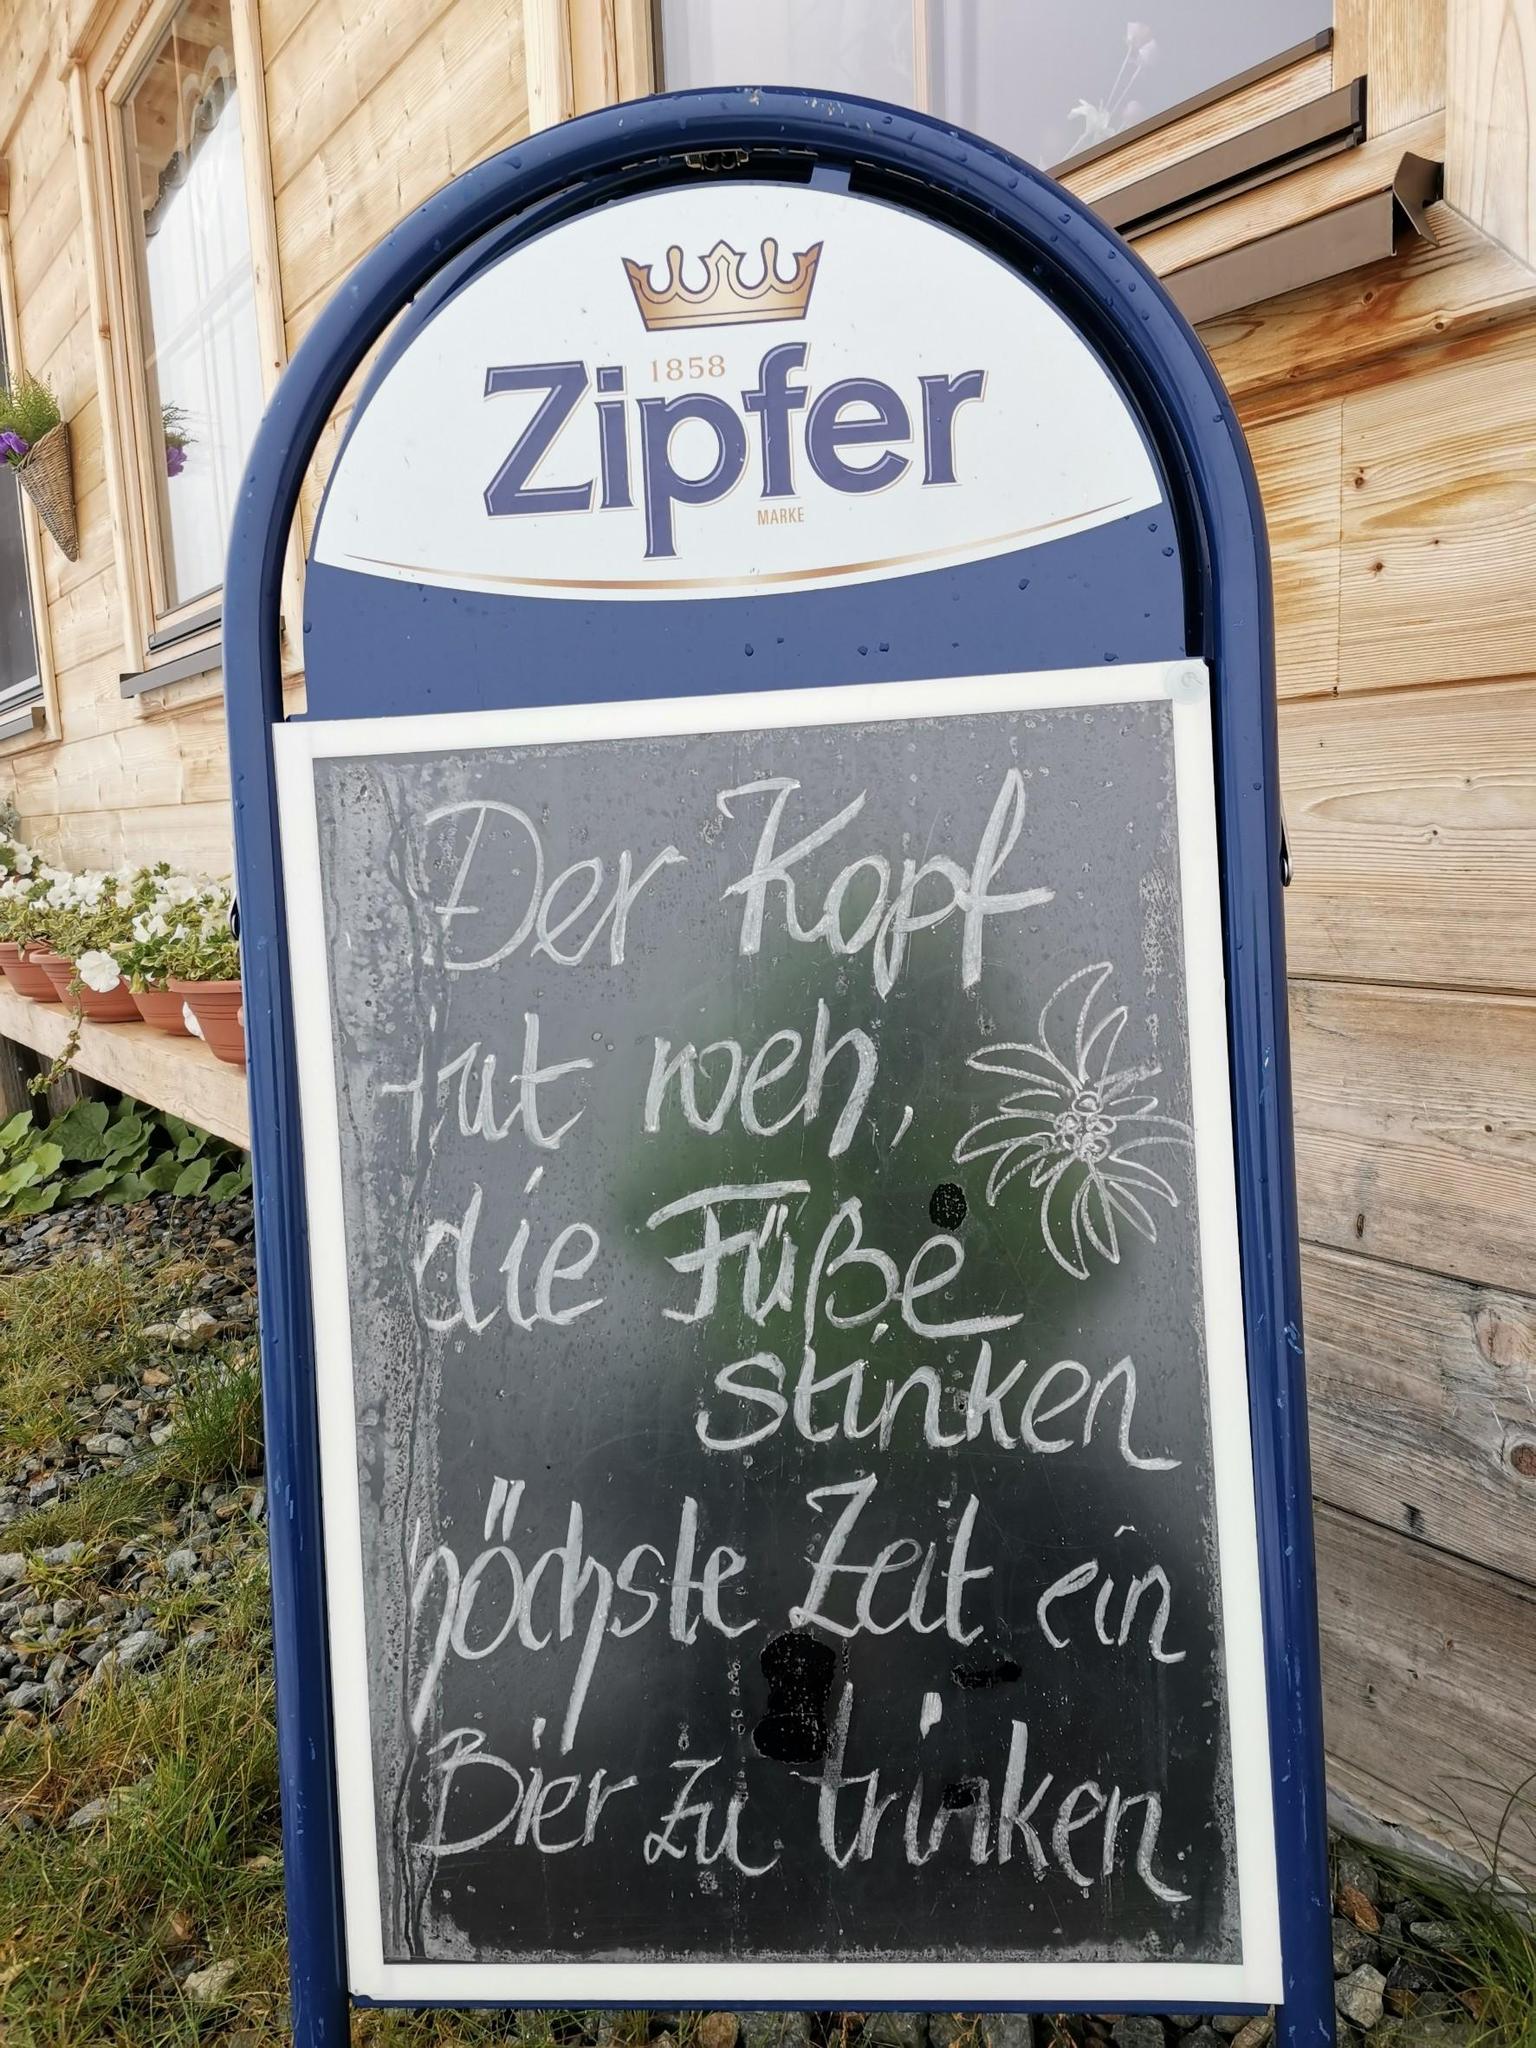 1858
Zipfer
MARKE
Der Kopf
tut weh,
die Füße
stinken
höchste Zeit ein
Bier zu trinken